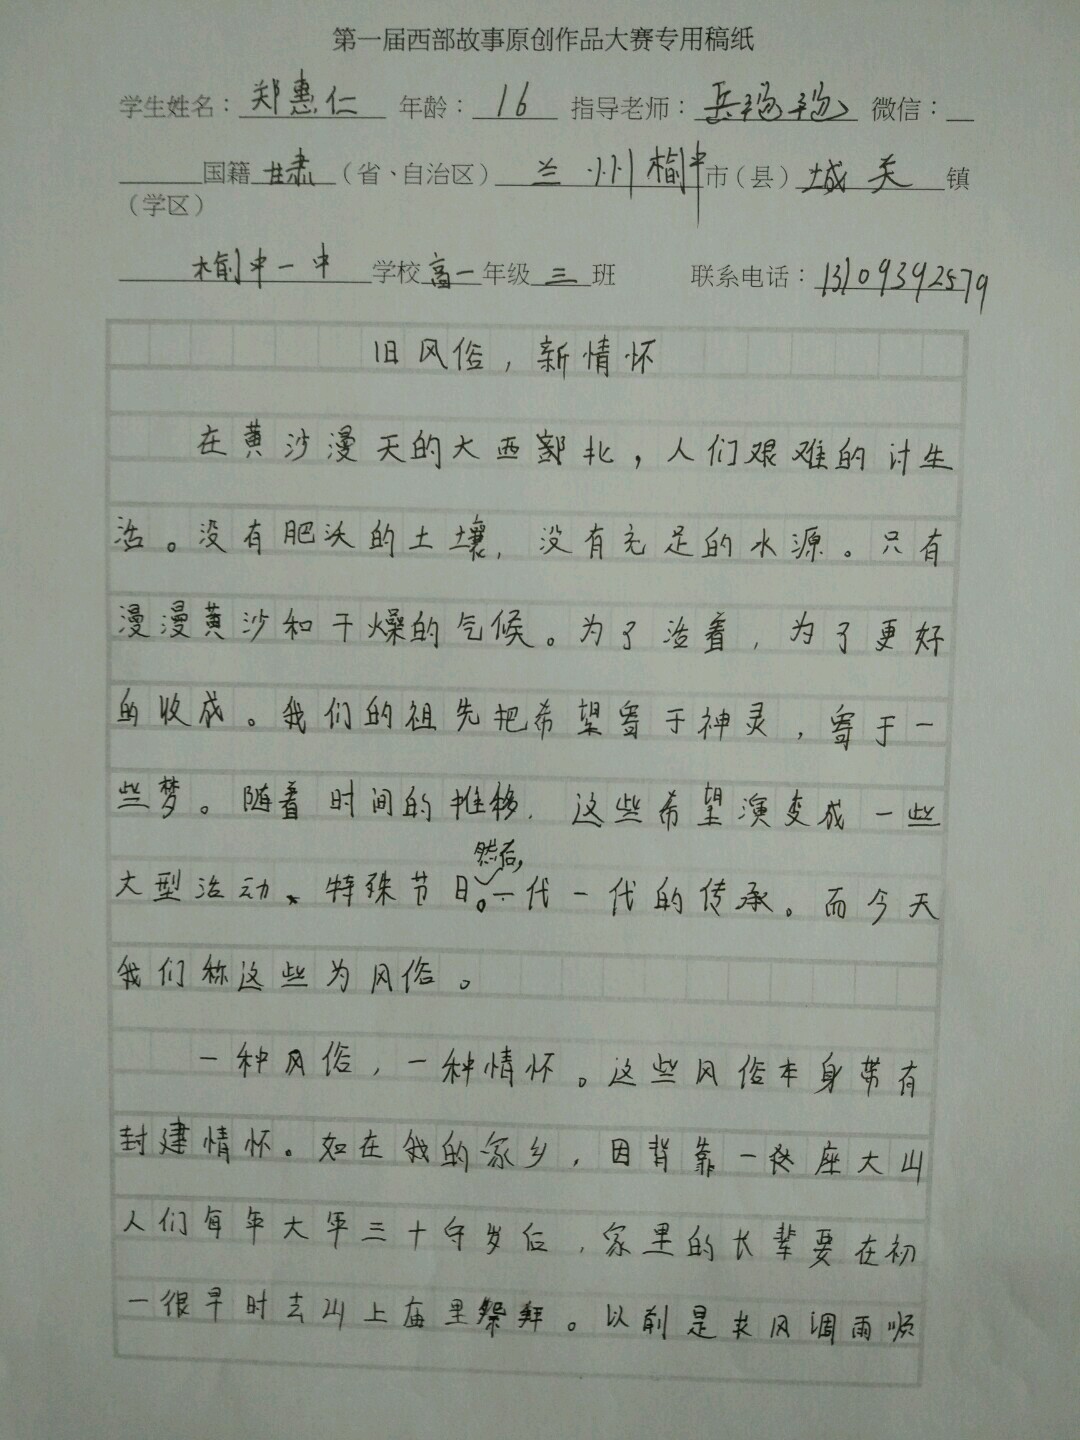 第一届西部故事原创作品大赛专用稿纸
学生姓名：郑惠仁 年龄：16 指导老师：岳 微信：
国籍甘肃（省、自治区）兰州榆中市（县）城关镇
（学区）
榆中一中学校高一年级三班 联系电话：13109392579
旧风俗，新情怀
在黄沙漫天的大西部北，人们艰难的讨生
活。没有肥沃的土壤，没有充足的水源。只有
漫漫黄沙和干燥的气候。为了活着，为了更好
的收成。我们的祖先把希望寄于神灵，寄于一
些梦。随着时间的推移，这些希望演变成一些
然后，
大型活动、特殊节日。一代一代的传承。而今天
我们称这些为风俗。
一种风俗，一种情怀。这些风俗本身带有
封建情怀。如在我的家乡，因背靠一座大山
人们每年大年三十守岁后，家里的长辈要在初
一很早时去山上庙里祭拜。以前是求风调雨顺